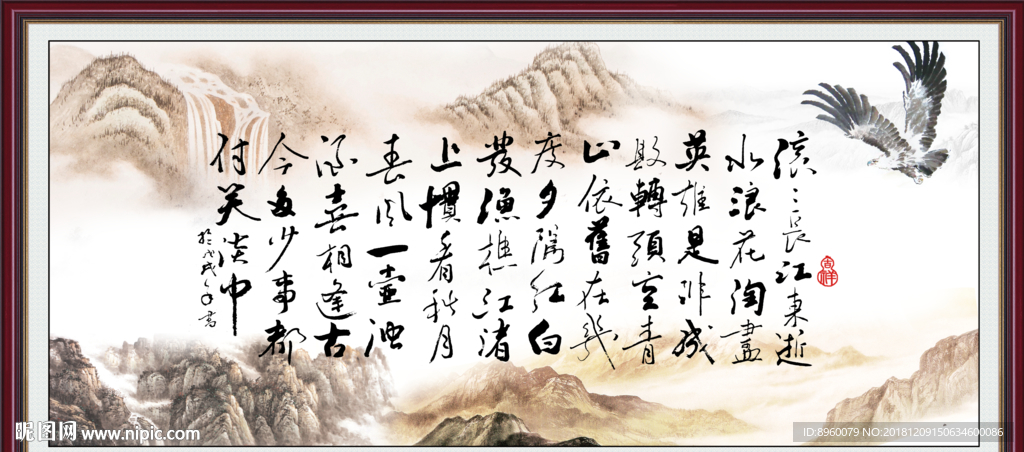 滚〻長江東逝
水浪花淘盡
英雄是非成
敗轉頭空青
山依舊在幾
度夕陽紅白
發漁樵江渚
上慣看秋月
春風一壺濁
酒喜相逢古
今多少事都
付笑談中
於戊戌年書
吉祥
昵图网 www.nipic.com
ID:8960079 NO:20181209150634600086